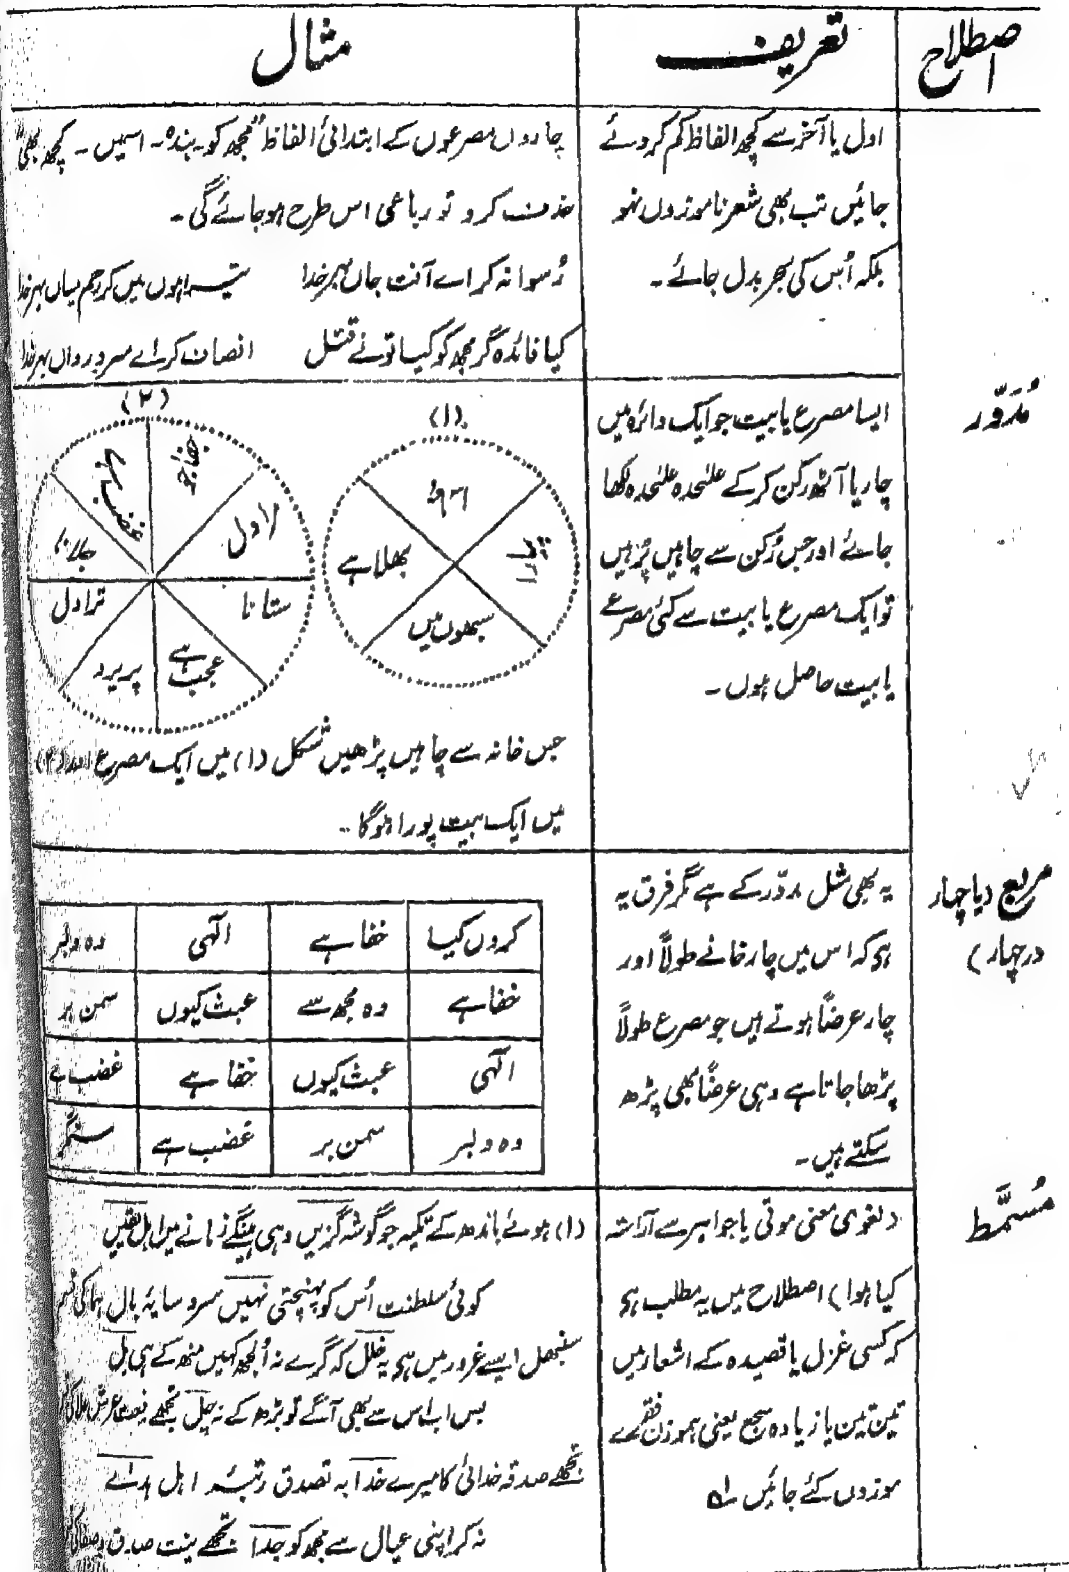 اصطلاح	تعریف	مثال
اول یا آخر سے کچھ الفاظ کم کر دئے
جائیں تب بھی شعر نا موزوں نہو
بلکہ اُس کی بحر بدل جائے۔
چاروں مصرعوں کے ابتدائی الفاظ "مجھ کو۔ بندہ۔ اسمیں۔ کچھ بھی"
حذف کر و تو رباعی اس طرح ہو جائے گی۔
رُسوا نہ کر اے آفت جاں بہر خدا تیرا ہوں میں کر رحم میاں بہر خدا
کیا فائدہ گر مجھ کو کیا تو نے قتل انصاف کر اے سرو رواں بہر خدا
مُدَوَّر
ایسا مصرع یا بیت جو ایک دائرہ میں
چار یا آٹھ رکن کر کے علٰحدہ علٰحدہ لکھا
جائے اور جس رُکن سے چاہیں پڑہیں
تو ایک مصرع یا بیت سے کئی مصرعے
یا بیت حاصل ہوں۔
(۱)
سبھوں میں
بھلا ہے
(۲)
جفا جو
غضب ہے
جلانا
ترا دل
پریرو
عجب ہے
ستانا
مرا دل
جس خانہ سے چاہیں پڑھیں شکل (۱) میں ایک مصرع اور (۲)
میں ایک بیت پورا ہوگا۔
مربع (یا چہار
در چہار)
یہ بھی مثل مدّور کے ہے مگر فرق یہ
ہو کہ اس میں چار خانے طولاً اور
چار عرضاً ہوتے ہیں جو مصرع طولاً
پڑھا جاتا ہے وہی عرضاً بھی پڑھ
سکتے ہیں۔
کروں کیا	خفا ہے	الٰہی	وہ دلبر
خفا ہے	وہ مجھ سے	عبث کیوں	سمن بر
الٰہی	عبث کیوں	خفا ہے	غضب ہے
وہ دلبر	سمن بر	غضب ہے	ستمگر
مُسَمَّط
(لغوی معنی موتی یا جواہر سے آراستہ
کیا ہوا) اصطلاح میں یہ مطلب ہو
کہ کسی غزل یا قصیدہ کے اشعار میں
تین تین یا زیادہ سجع یعنی ہموزن فقرے
موزوں کئے جائیں لہ
(۱) ہوئے باندھ کے تکیہ جو گوشہ گزیں وہی ہینگے زمانے میں اہل یقیں
کوئی سلطنت اُس کو پہنچتی نہیں سرو سایۂ بال ہما کی قسم
سنبھل ایسے غرور میں ہو یہ خلل کہ گرے نہ اُلجھ کہیں منھ کے ہی بل
بس اب اس سے بھی آگے تو بڑھ کے نہ چل تجھے عرش علا کی قسم
تجھے صدقہ خدائی کا میرے خدا بہ تصدق رتبۂ اہل
نہ کر اپنی عیال سے مجھ کو جدا تجھے صدق و صفا کی